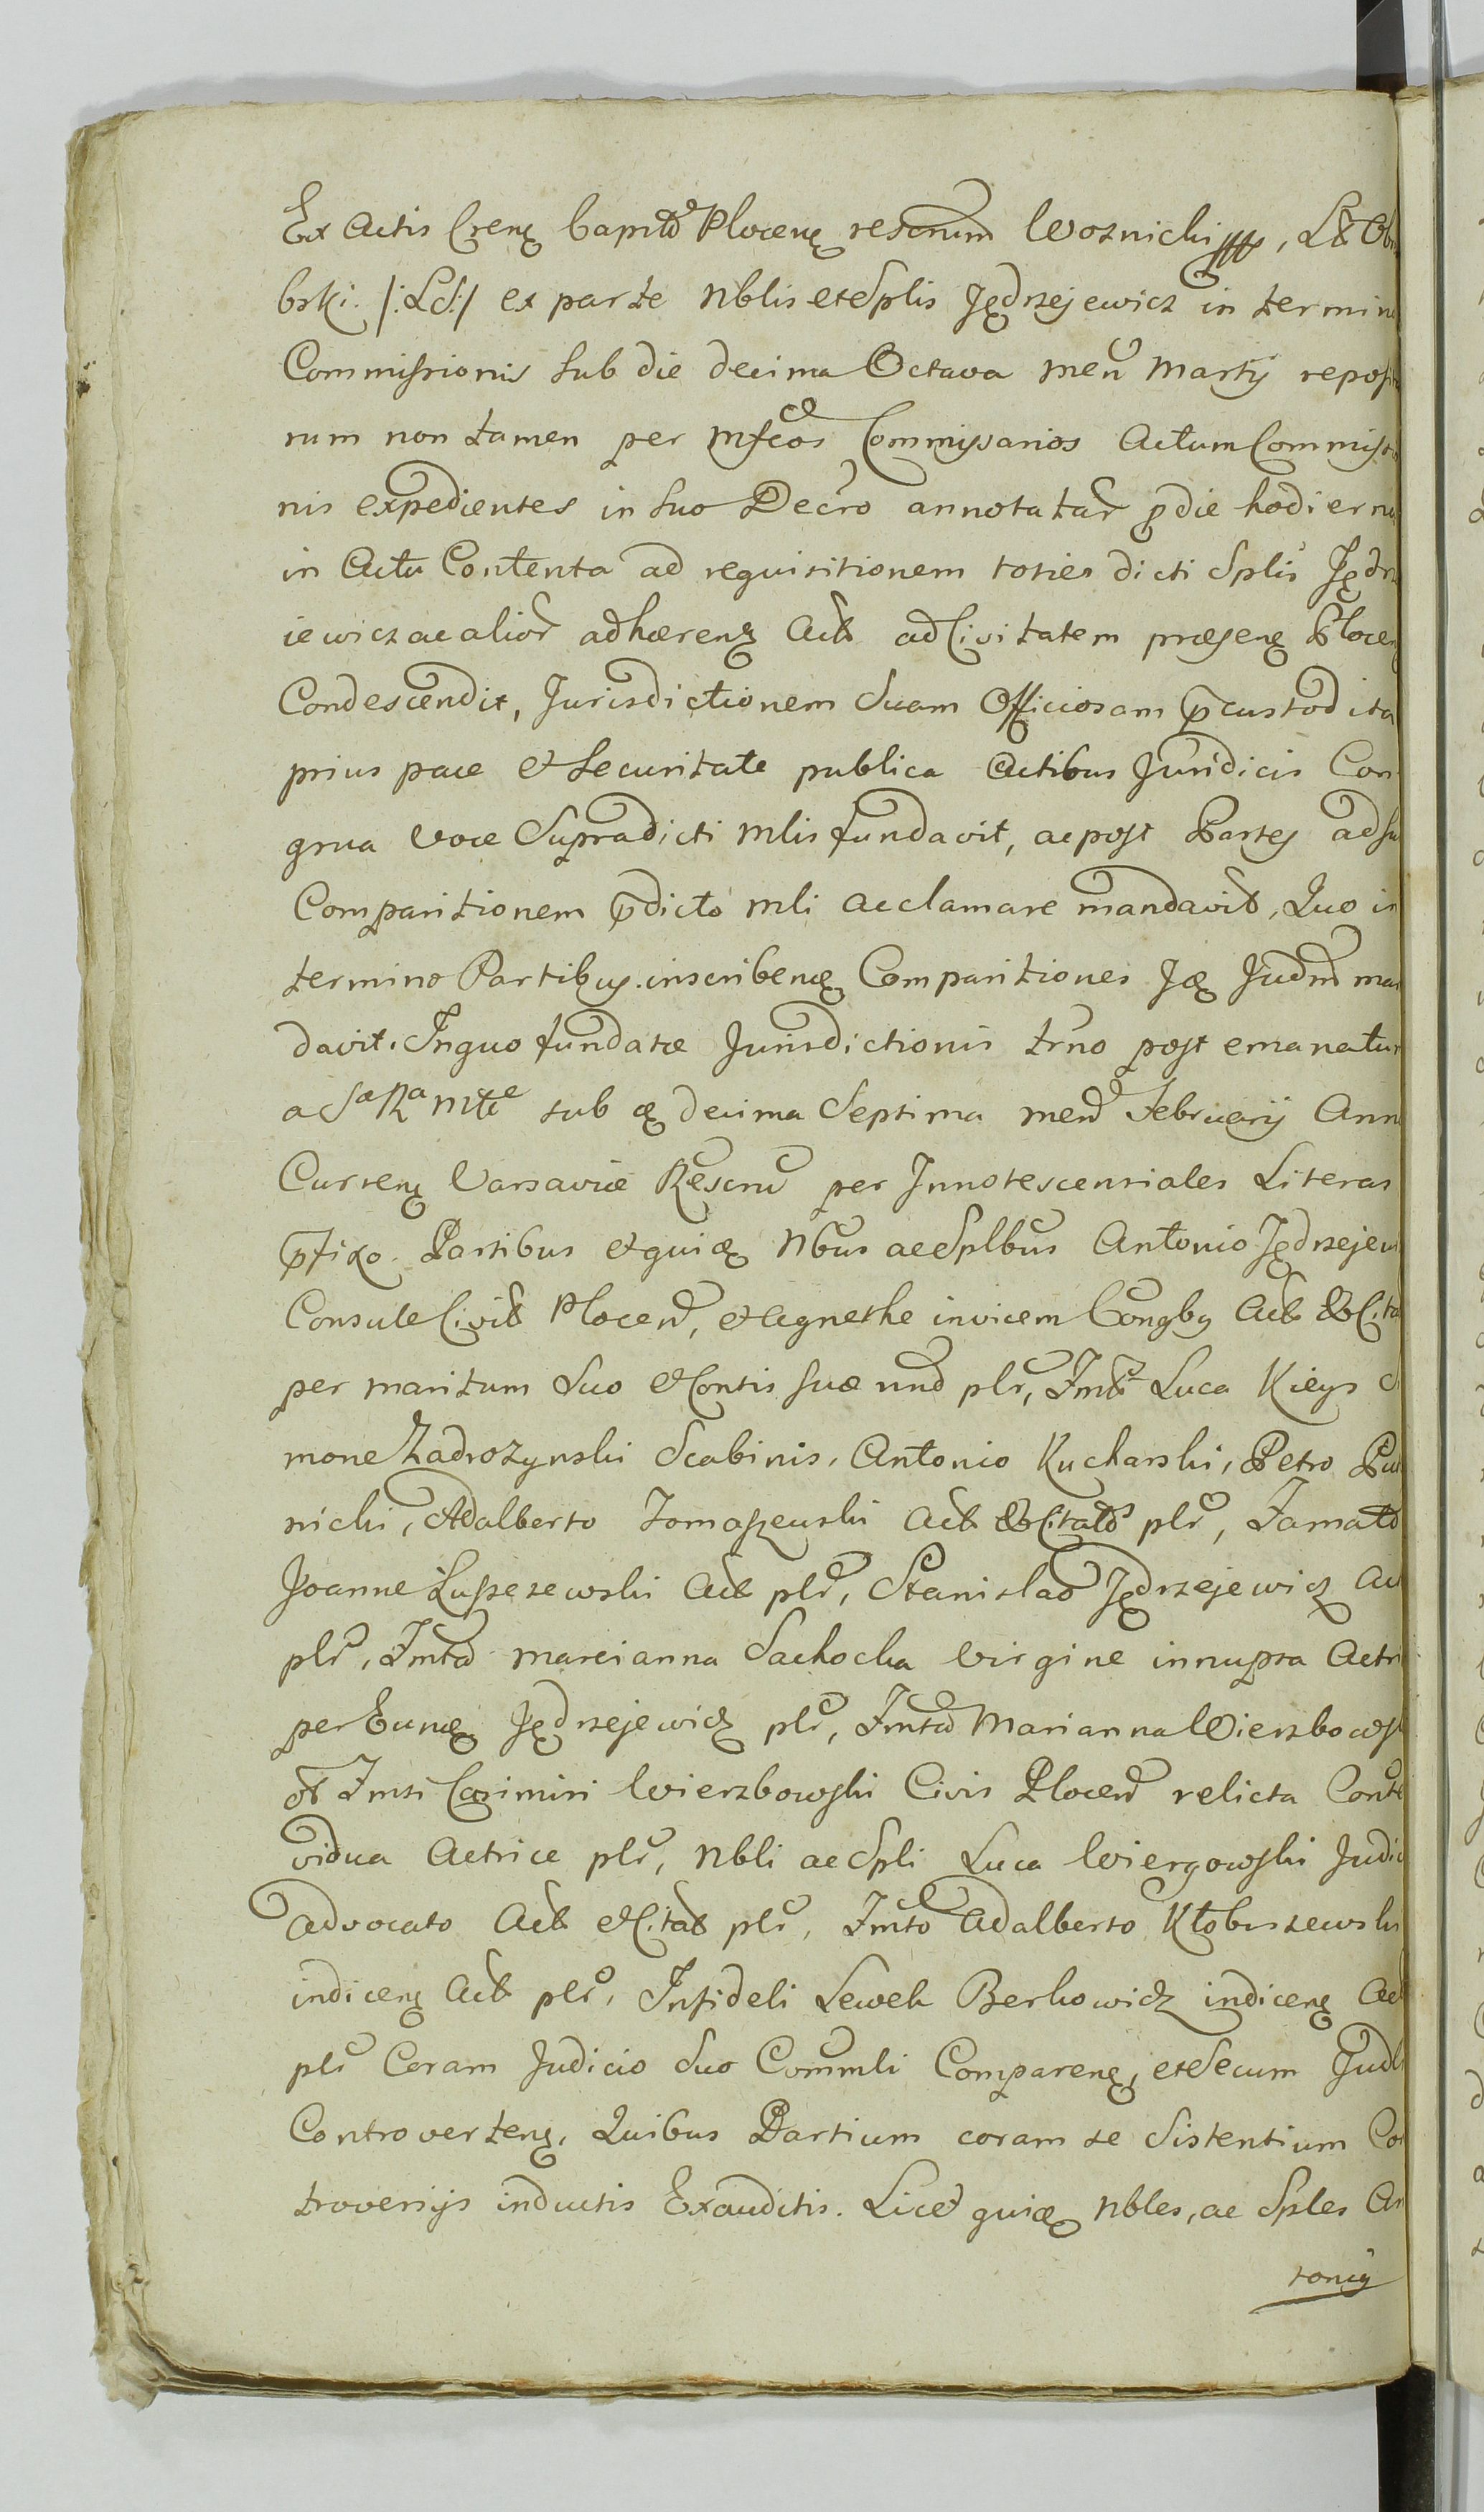 Ex Actis Cren Capitd Plocen rescrum Woznicki, Lt Ob
bski. /:LS:/ ex parte Nblis et Splis Jędrzejewicz in termin
Commissionis sub die decima Octava men Martij repos
rum non tamen per Mfcos Commissarios Actum Commiss
nis expedientes in suo Decro annotatar pdie hodierna
in Actu Contenta ad requisitionem toties dicti Splis Jędrz
iewicz ac alior adhæren Act ad Civitatem præsen Plocen
Condescendit, Jurisdictionem Suam Officiosam pcustodita
prius pace et Securitate publica Actibus Juridicis Con
grua voce Supradicti Mlis fundavit, ac post Partes ad su
Comparitionem pdicto Mli acclamare mandavit, Quo in
termino Partibus inscriben Comparitiones Jq Judm man
davit. In quo fundatæ Jurisdictionis trno post emanatur
a Sa Ra Mtte sub q decima Septima mens Februarij Ann
Curren Varsaviæ Rescru per Innotescentiales Literas
pfixo Partibus et quiq Nbus ac Splbus Antonio Jędrzejew
Consule Civit Plocen, et Agnethe invicem Congby Act & Cita
per maritum Suo et Contis suæ und plr, Fmt Luca Kieys
mone Zadrozynski Scabinis, Antonio Kucharski, Petro
nicki, Adalberto Tomaszewski Act & Citato plr, Famato
Joanne Łuszczewski Act plr, Stanislao Jędrzejewicz Act
plr, Fmta Marcianna Sachocka Virgine innupta Actri
per Eund Jędrzejewicz plr, Fmta Marianna Wierzbowsk
ol Fmti Casimiri Wierzbowski Civis Plocen relicta Conte
vidua Actrice plr, Nbli ac Spli Luca Wiergowski Judic
Advocato Act et Citat plr, Fmto Adalberto Kłobuszewski
indicen Act plr, Infideli Lewek Berkowicz indicen Act
plr Coram Judicio Suo Commli Comparen, et Secum Judl
Controverten, Quibus Partium coram se Sistentium Con
troversijs inductis Exauditis. Licet quiq Nbles, ac Sples An
tonig